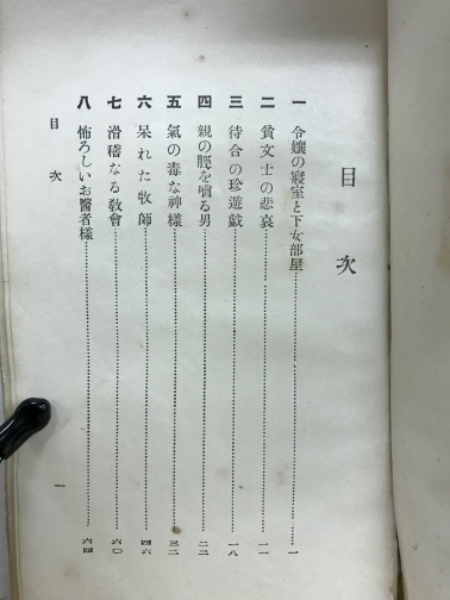 目次
一 令孃の寢室と下女部屋……一
二 貧文士の悲哀……一一
三 待合の珍遊戯……一八
四 親の脛を嚙る男……二二
五 氣の毒な神樣……三二
六 呆れた牧師……四六
七 滑稽なる敎會……六〇
八 怖ろしいお醫者樣……六四
目次
一